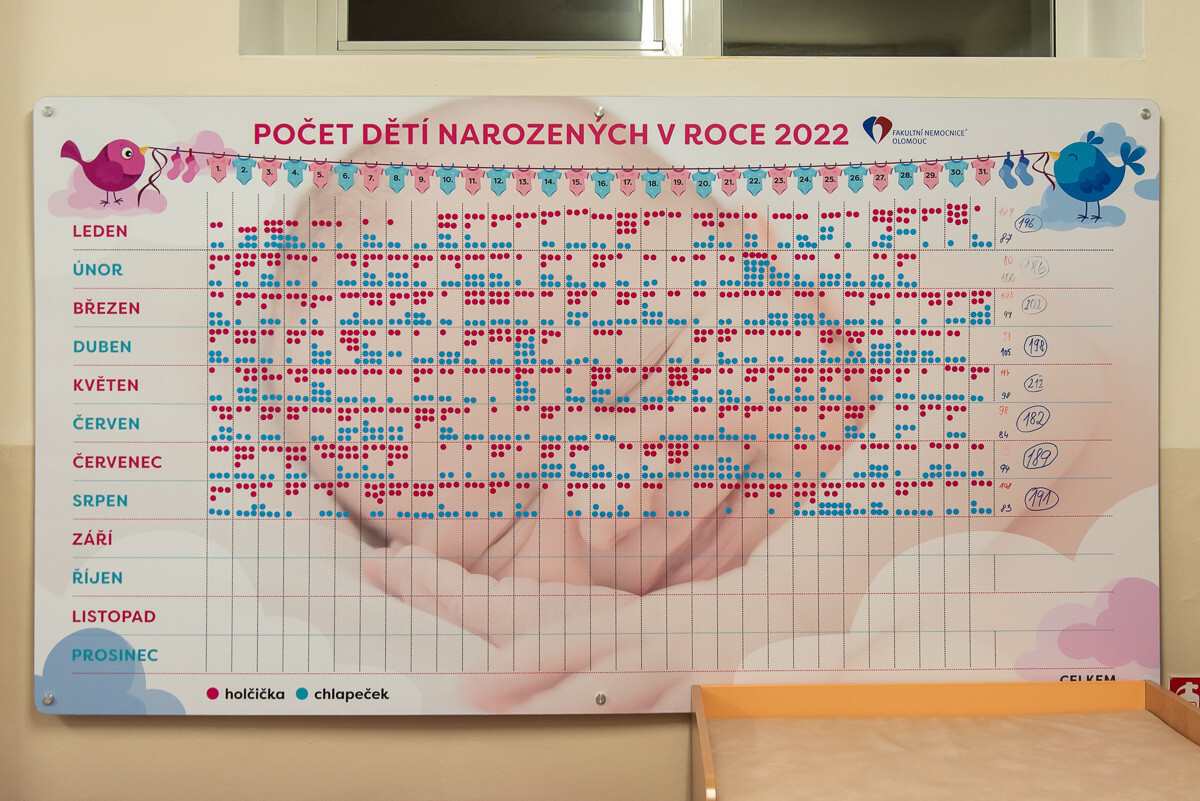 POČET DĚTÍ NAROZENÝCH V ROCE 2022
FAKULTNÍ NEMOCNICE®
OLOMOUC
1. 2. 3. 4. 5. 6. 7. 8. 9. 10. 11. 12. 13. 14. 15. 16. 17. 18. 19. 20. 21. 22. 23. 24. 25. 26. 27. 28. 29. 30. 31.
LEDEN 109 87 196
ÚNOR 80 186
BŘEZEN 103 99 202
DUBEN 93 105 198
KVĚTEN 98 212
ČERVEN 98 84 182
ČERVENEC 94 189
SRPEN 108 83 191
ZÁŘÍ
ŘÍJEN
LISTOPAD
PROSINEC
CELKEM
holčička chlapeček